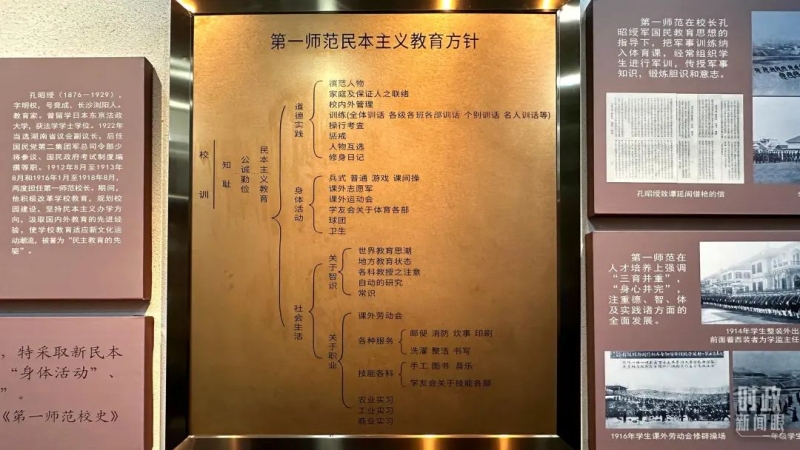 孔昭绶（1876—1929），
字明权，号竞成，长沙浏阳人。
教育家。曾留学日本东京法政
大学，获法学学士学位。1922年
当选湖南省议会副议长，后任
国民党第二集团军总司令部少
将参议、国民政府考试制度编
撰等职。1912年8月至1913年
8月和1916年1月至1918年8月，
两度担任第一师范校长。期间，
他积极改革学校教育，规划校
园建设，坚持民本主义办学方
向，汲取国内外教育的先进经
验，使学校教育适应新文化运
动潮流，被誉为“民主教育的先
驱”。
，特采取新民本
“身体活动”、
”。
《第一师范校史》
第一师范民本主义教育方针
校训
知耻
公诚勤俭
民本主义教育
道德实践
模范人物
家庭及保证人之联络
校内外管理
训练(全体训话 各级各班各部训话 个别训话 名人训话等)
操行考查
惩戒
人物互选
修身日记
身体活动
兵式 普通 游戏 课间操
课外志愿军
课外运动会
学友会关于体育各部
球团
卫生
社会生活
关于智识
世界教育思潮
地方教育状态
各科教授之注意
自动的研究
常识
关于职业
课外劳动会
各种服务
邮便 消防 炊事 印刷
洗濯 整洁 书写
技能各科
手工 图书 音乐
学友会关于技能各部
农业实习
工业实习
商业实习
第一师范在校长孔
昭绶军国民教育思想的
指导下，把军事训练纳
入体育课，经常组织学
生进行军训，传授军事
知识，锻炼胆识和意志。
孔昭绶致谭延闿借枪的信
第一师范在
人才培养上强调
“三育并重”，
“身心并完”，
注重德、智、体
及实践诸方面的
全面发展。
1914年学生整装外出
前面着西装者为学监主任
1916年学生课外劳动会修辟操场
一年级学生
时政
新闻眼